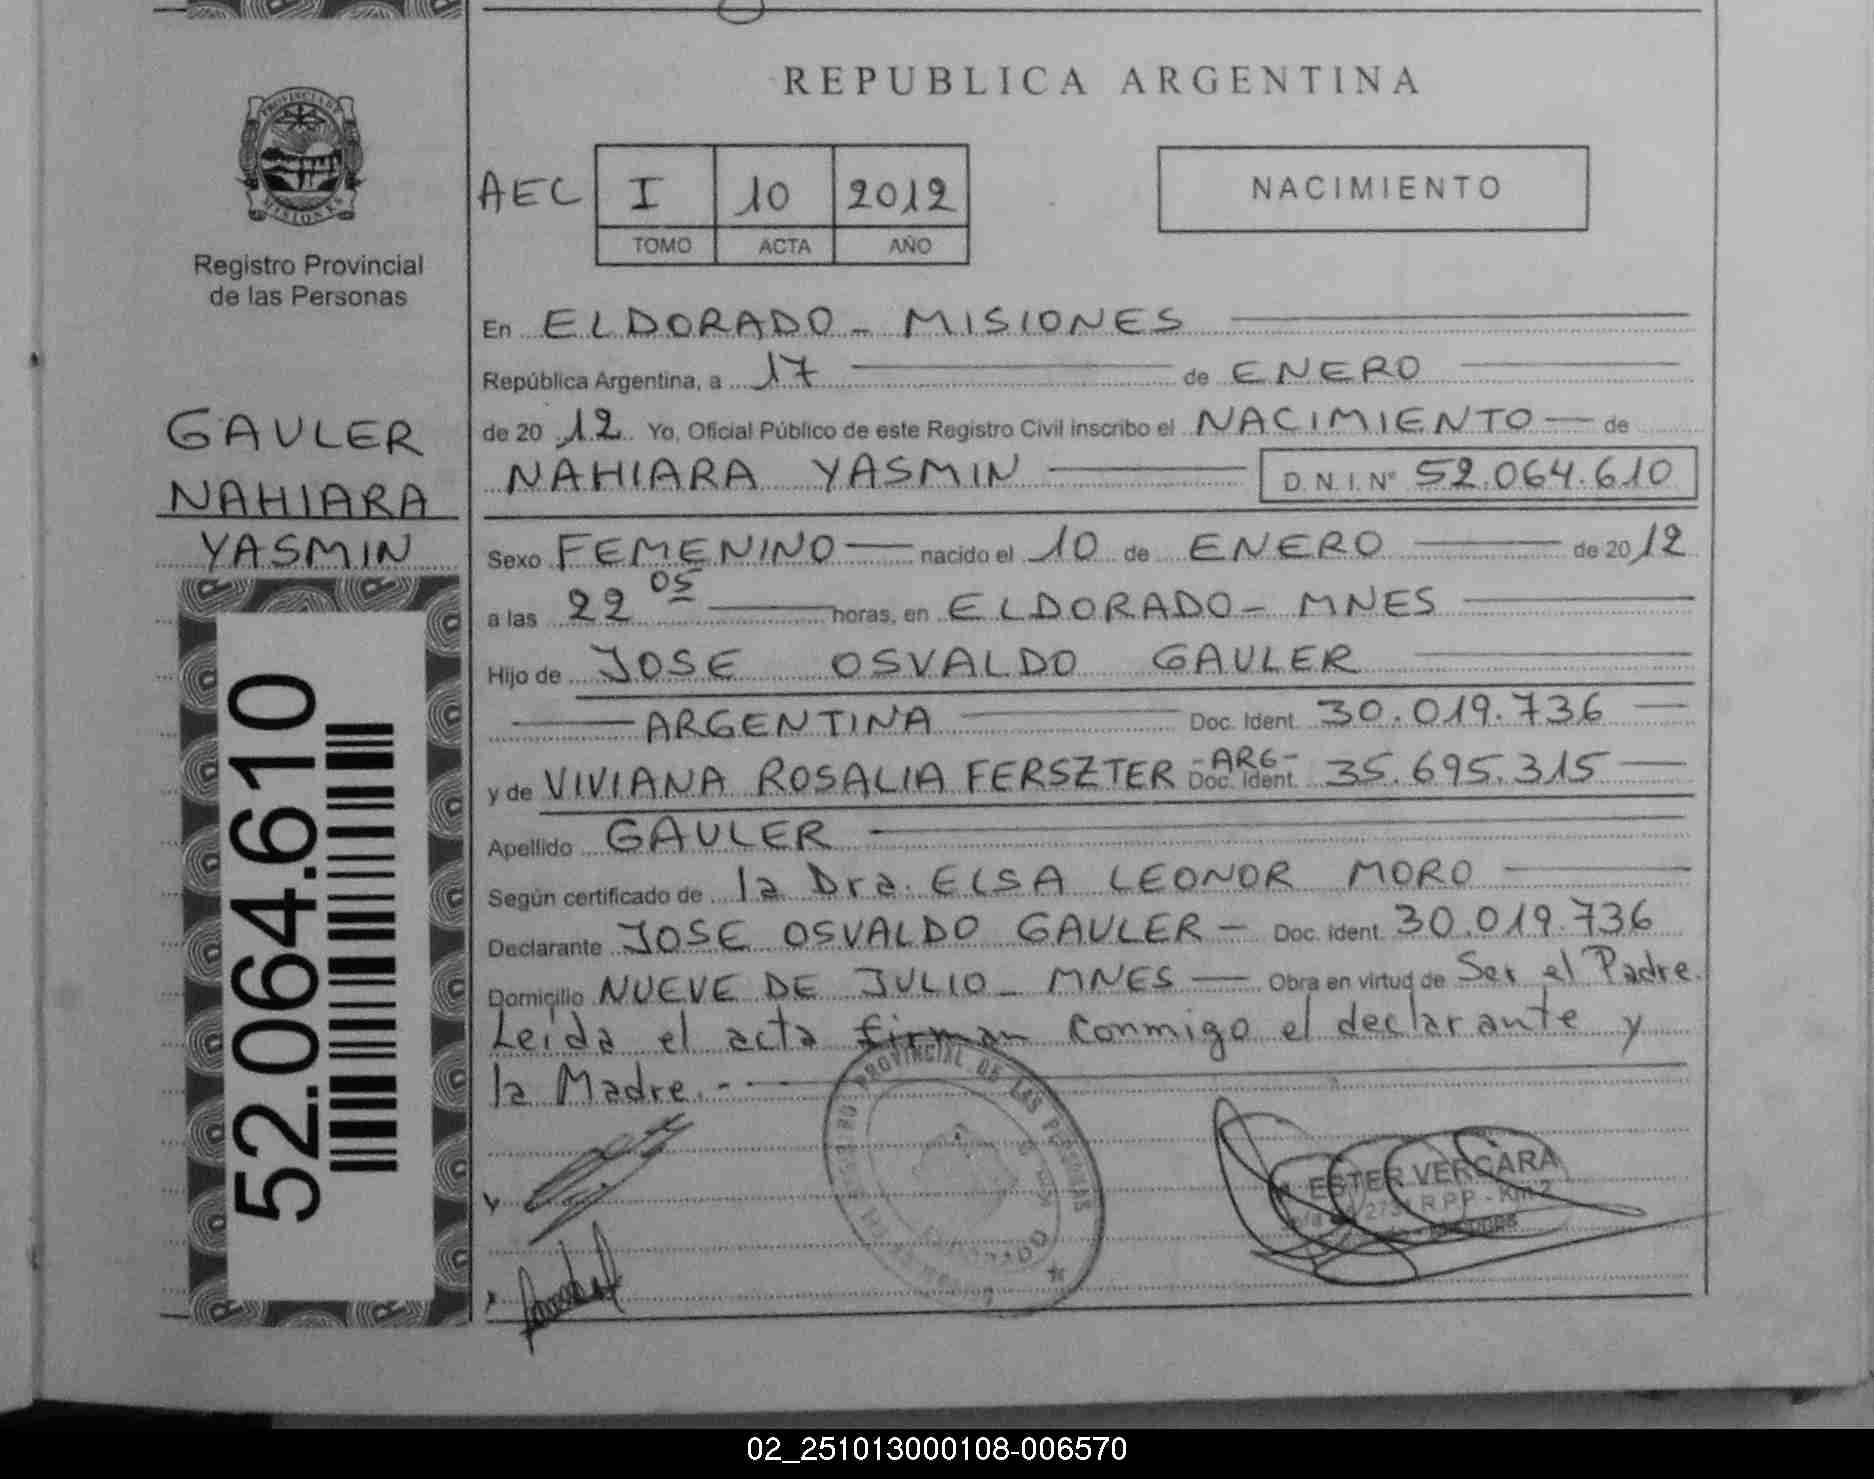 REPUBLICA ARGENTINA
PROVINCIA DE
MISIONES
Registro Provincial
de las Personas
AEC I 10 2012
TOMO ACTA AÑO
NACIMIENTO
En ELDORADO - MISIONES
República Argentina, a 17 de ENERO
de 20 12 Yo, Oficial Público de este Registro Civil inscribo el NACIMIENTO de
NAHIARA YASMIN D.N.I. Nº 52.064.610
GAULER
NAHIARA
YASMIN
Sexo FEMENINO nacido el 10 de ENERO de 20 12
a las 22 05 horas, en ELDORADO - MNES
Hijo de JOSE OSVALDO GAULER
ARGENTINA Doc. Ident. 30.019.736
y de VIVIANA ROSALIA FERSZTER -ARG- Doc. Ident. 35.695.315
Apellido GAULER
Según certificado de la Dra. ELSA LEONOR MORO
Declarante JOSE OSVALDO GAULER - Doc. Ident. 30.019.736
Domicilio NUEVE DE JULIO - MNES Obra en virtud de Ser el Padre.
Leída el acta firman conmigo el declarante y
la Madre.-
52.064.610
PROVINCIAL DE LAS PERSONAS
ESTER VERGARA
R.P.P - Km 2
02_251013000108-006570